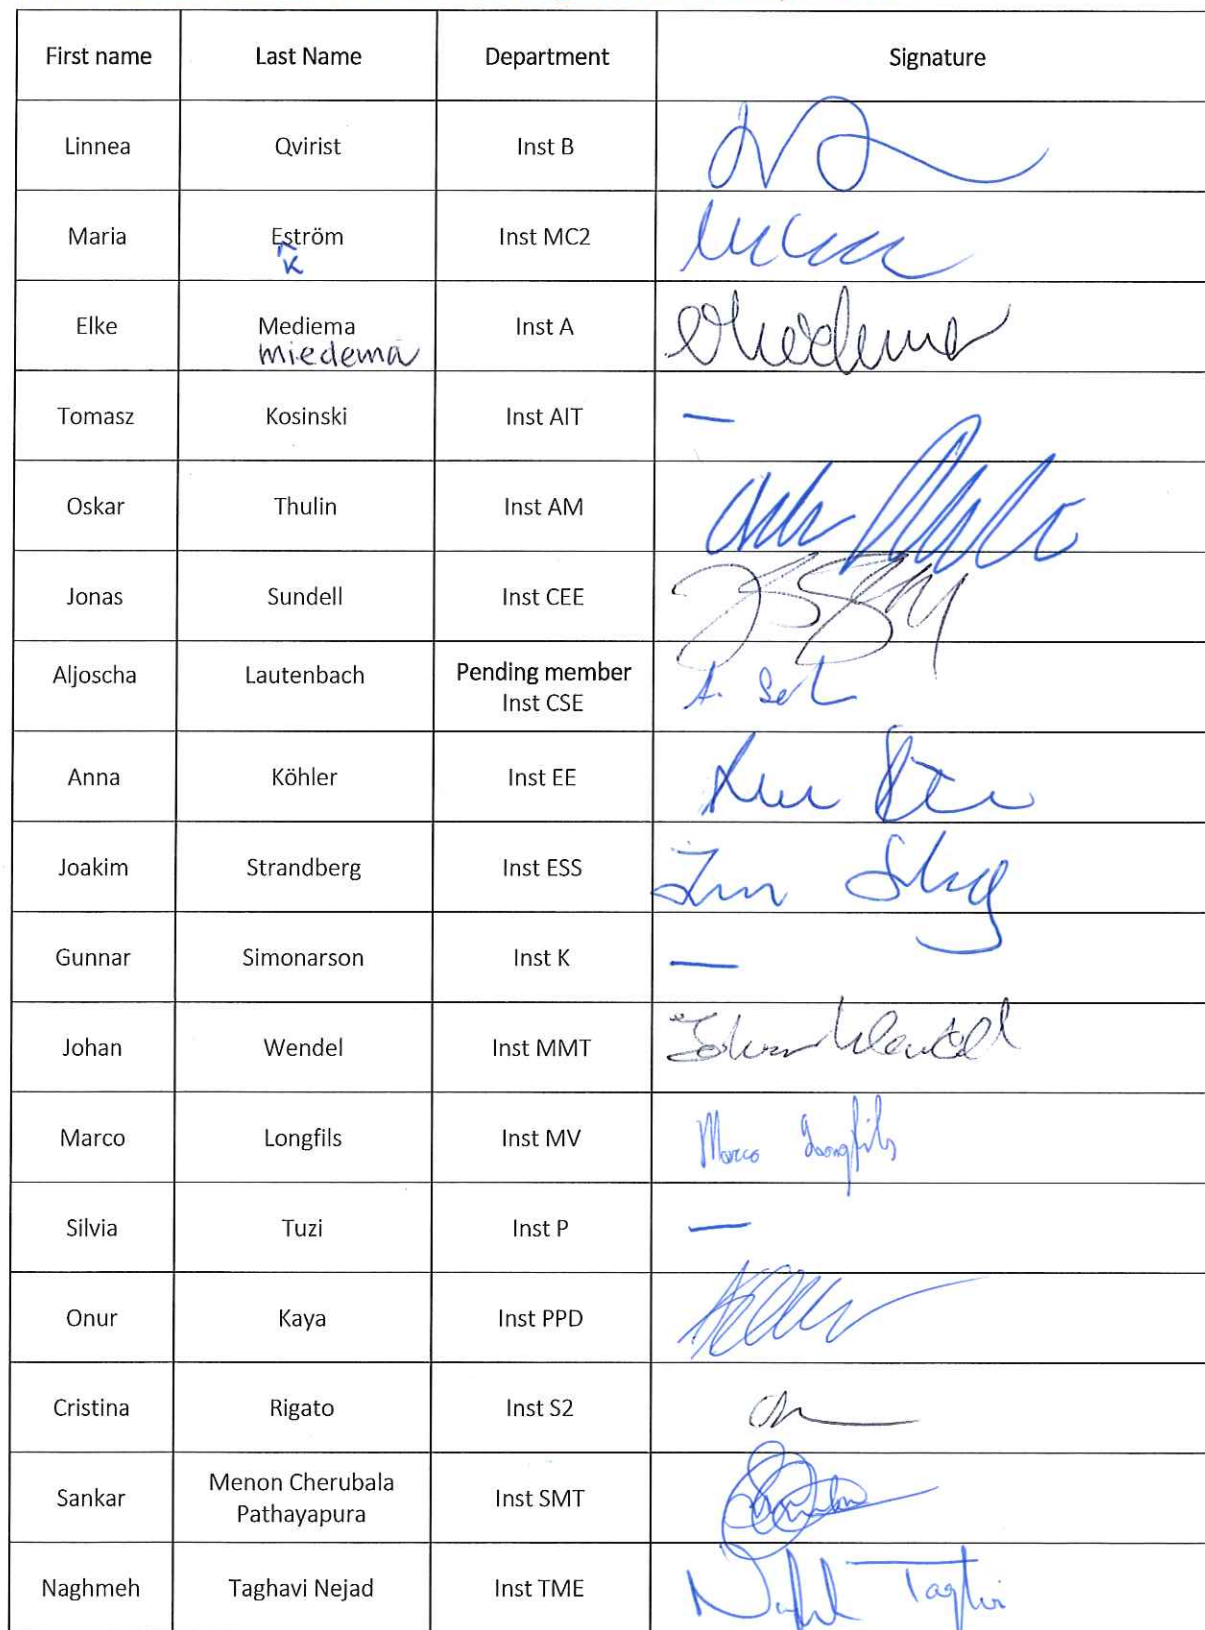 First name Last Name Department Signature
Linnea Qvirist Inst B
Maria Eström Inst MC2
K
Elke Mediema Inst A
Miedema
Tomasz Kosinski Inst AIT —
Oskar Thulin Inst AM
Jonas Sundell Inst CEE
Aljoscha Lautenbach Pending member
Inst CSE
Anna Köhler Inst EE
Joakim Strandberg Inst ESS
Gunnar Simonarson Inst K —
Johan Wendel Inst MMT Johan Wendel
Marco Longfils Inst MV Marco Longfils
Silvia Tuzi Inst P —
Onur Kaya Inst PPD
Cristina Rigato Inst S2
Sankar Menon Cherubala
Pathayapura Inst SMT
Naghmeh Taghavi Nejad Inst TME